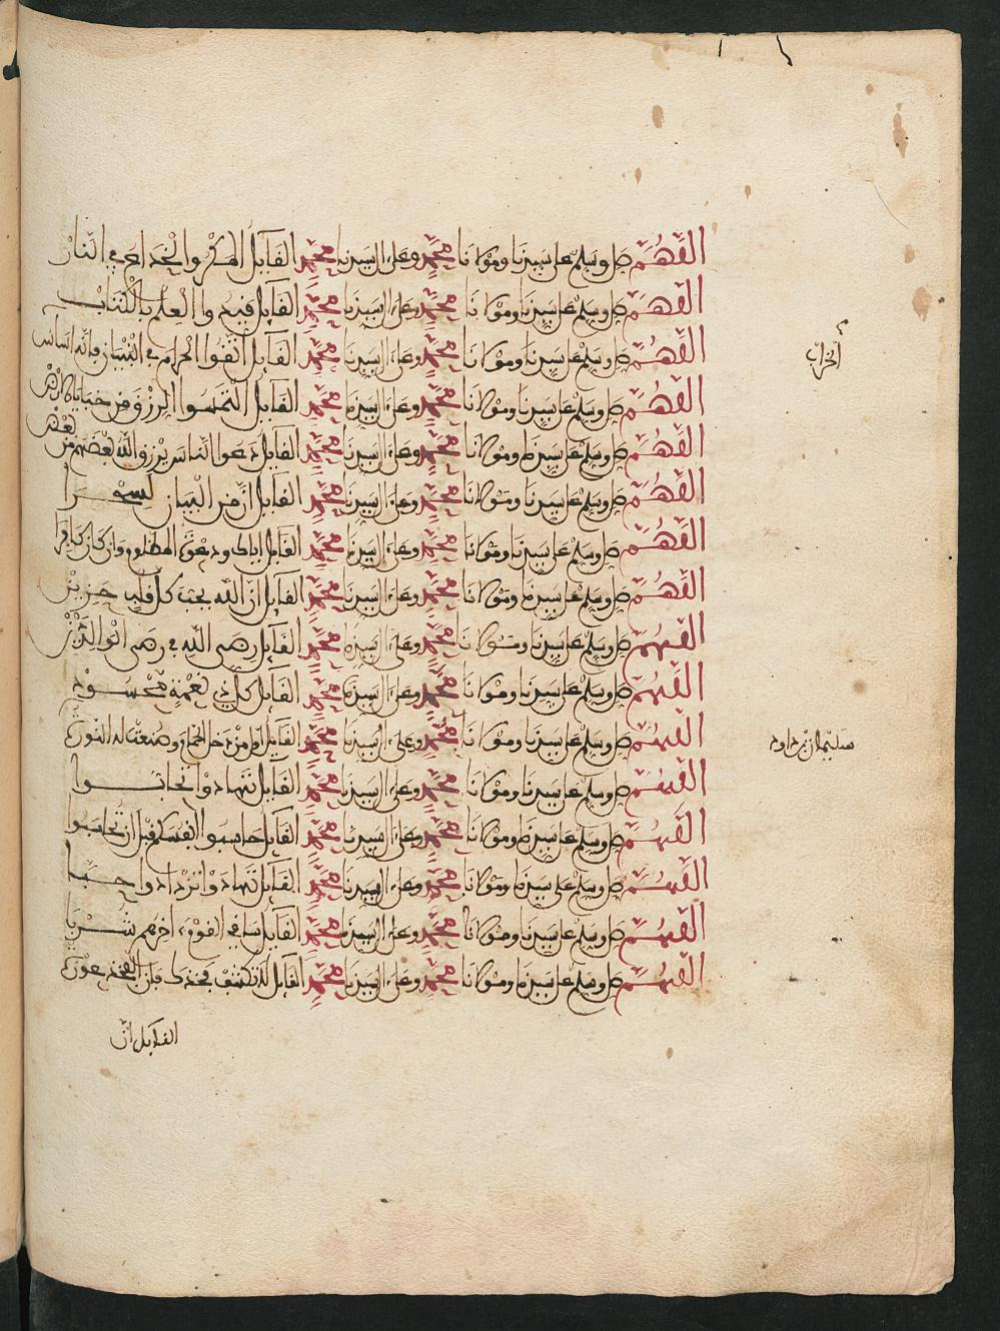 اللهم صل وسلم على سيدنا ومولانا محمد وعلى ال سيدنا محمد القايل المكر والخداع في النار
اللهم صل وسلم على سيدنا ومولانا محمد وعلى ال سيدنا محمد القايل قيدوا العلم بالكتاب
اللهم صل وسلم على سيدنا ومولانا محمد وعلى ال سيدنا محمد القايل اتقوا الحرام في البنيان فانه اساس
الخراب
اللهم صل وسلم على سيدنا ومولانا محمد وعلى ال سيدنا محمد القايل التمسوا الرزق من خبايا الارض
اللهم صل وسلم على سيدنا ومولانا محمد وعلى ال سيدنا محمد القايل دعوا الناس يرزق الله بعضهم من بعض
اللهم صل وسلم على سيدنا ومولانا محمد وعلى ال سيدنا محمد القايل ان من البيان لسحرا
اللهم صل وسلم على سيدنا ومولانا محمد وعلى ال سيدنا محمد القايل اياك ودعوة المظلوم وان كان كافرا
اللهم صل وسلم على سيدنا ومولانا محمد وعلى ال سيدنا محمد القايل ان الله يحب كل قلب حزين
اللهم صل وسلم على سيدنا ومولانا محمد وعلى ال سيدنا محمد القايل رضى الله في رضى الوالدين
اللهم صل وسلم على سيدنا ومولانا محمد وعلى ال سيدنا محمد القايل كل ذي نعمة محسود
اللهم صل وسلم على سيدنا ومولانا محمد وعلى ال سيدنا محمد القايل اول من دخل الحمام وصنعت له النورة
سليمان بن داود
اللهم صل وسلم على سيدنا ومولانا محمد وعلى ال سيدنا محمد القايل تهادوا تحابوا
اللهم صل وسلم على سيدنا ومولانا محمد وعلى ال سيدنا محمد القايل حاسبوا انفسكم قبل ان تحاسبوا
اللهم صل وسلم على سيدنا ومولانا محمد وعلى ال سيدنا محمد القايل تهادوا تزدادوا حبا
اللهم صل وسلم على سيدنا ومولانا محمد وعلى ال سيدنا محمد القايل ساقي القوم اخرهم شربا
اللهم صل وسلم على سيدنا ومولانا محمد وعلى ال سيدنا محمد القايل لا تكشف فخذك فان الفخذ عورة
القايل ان